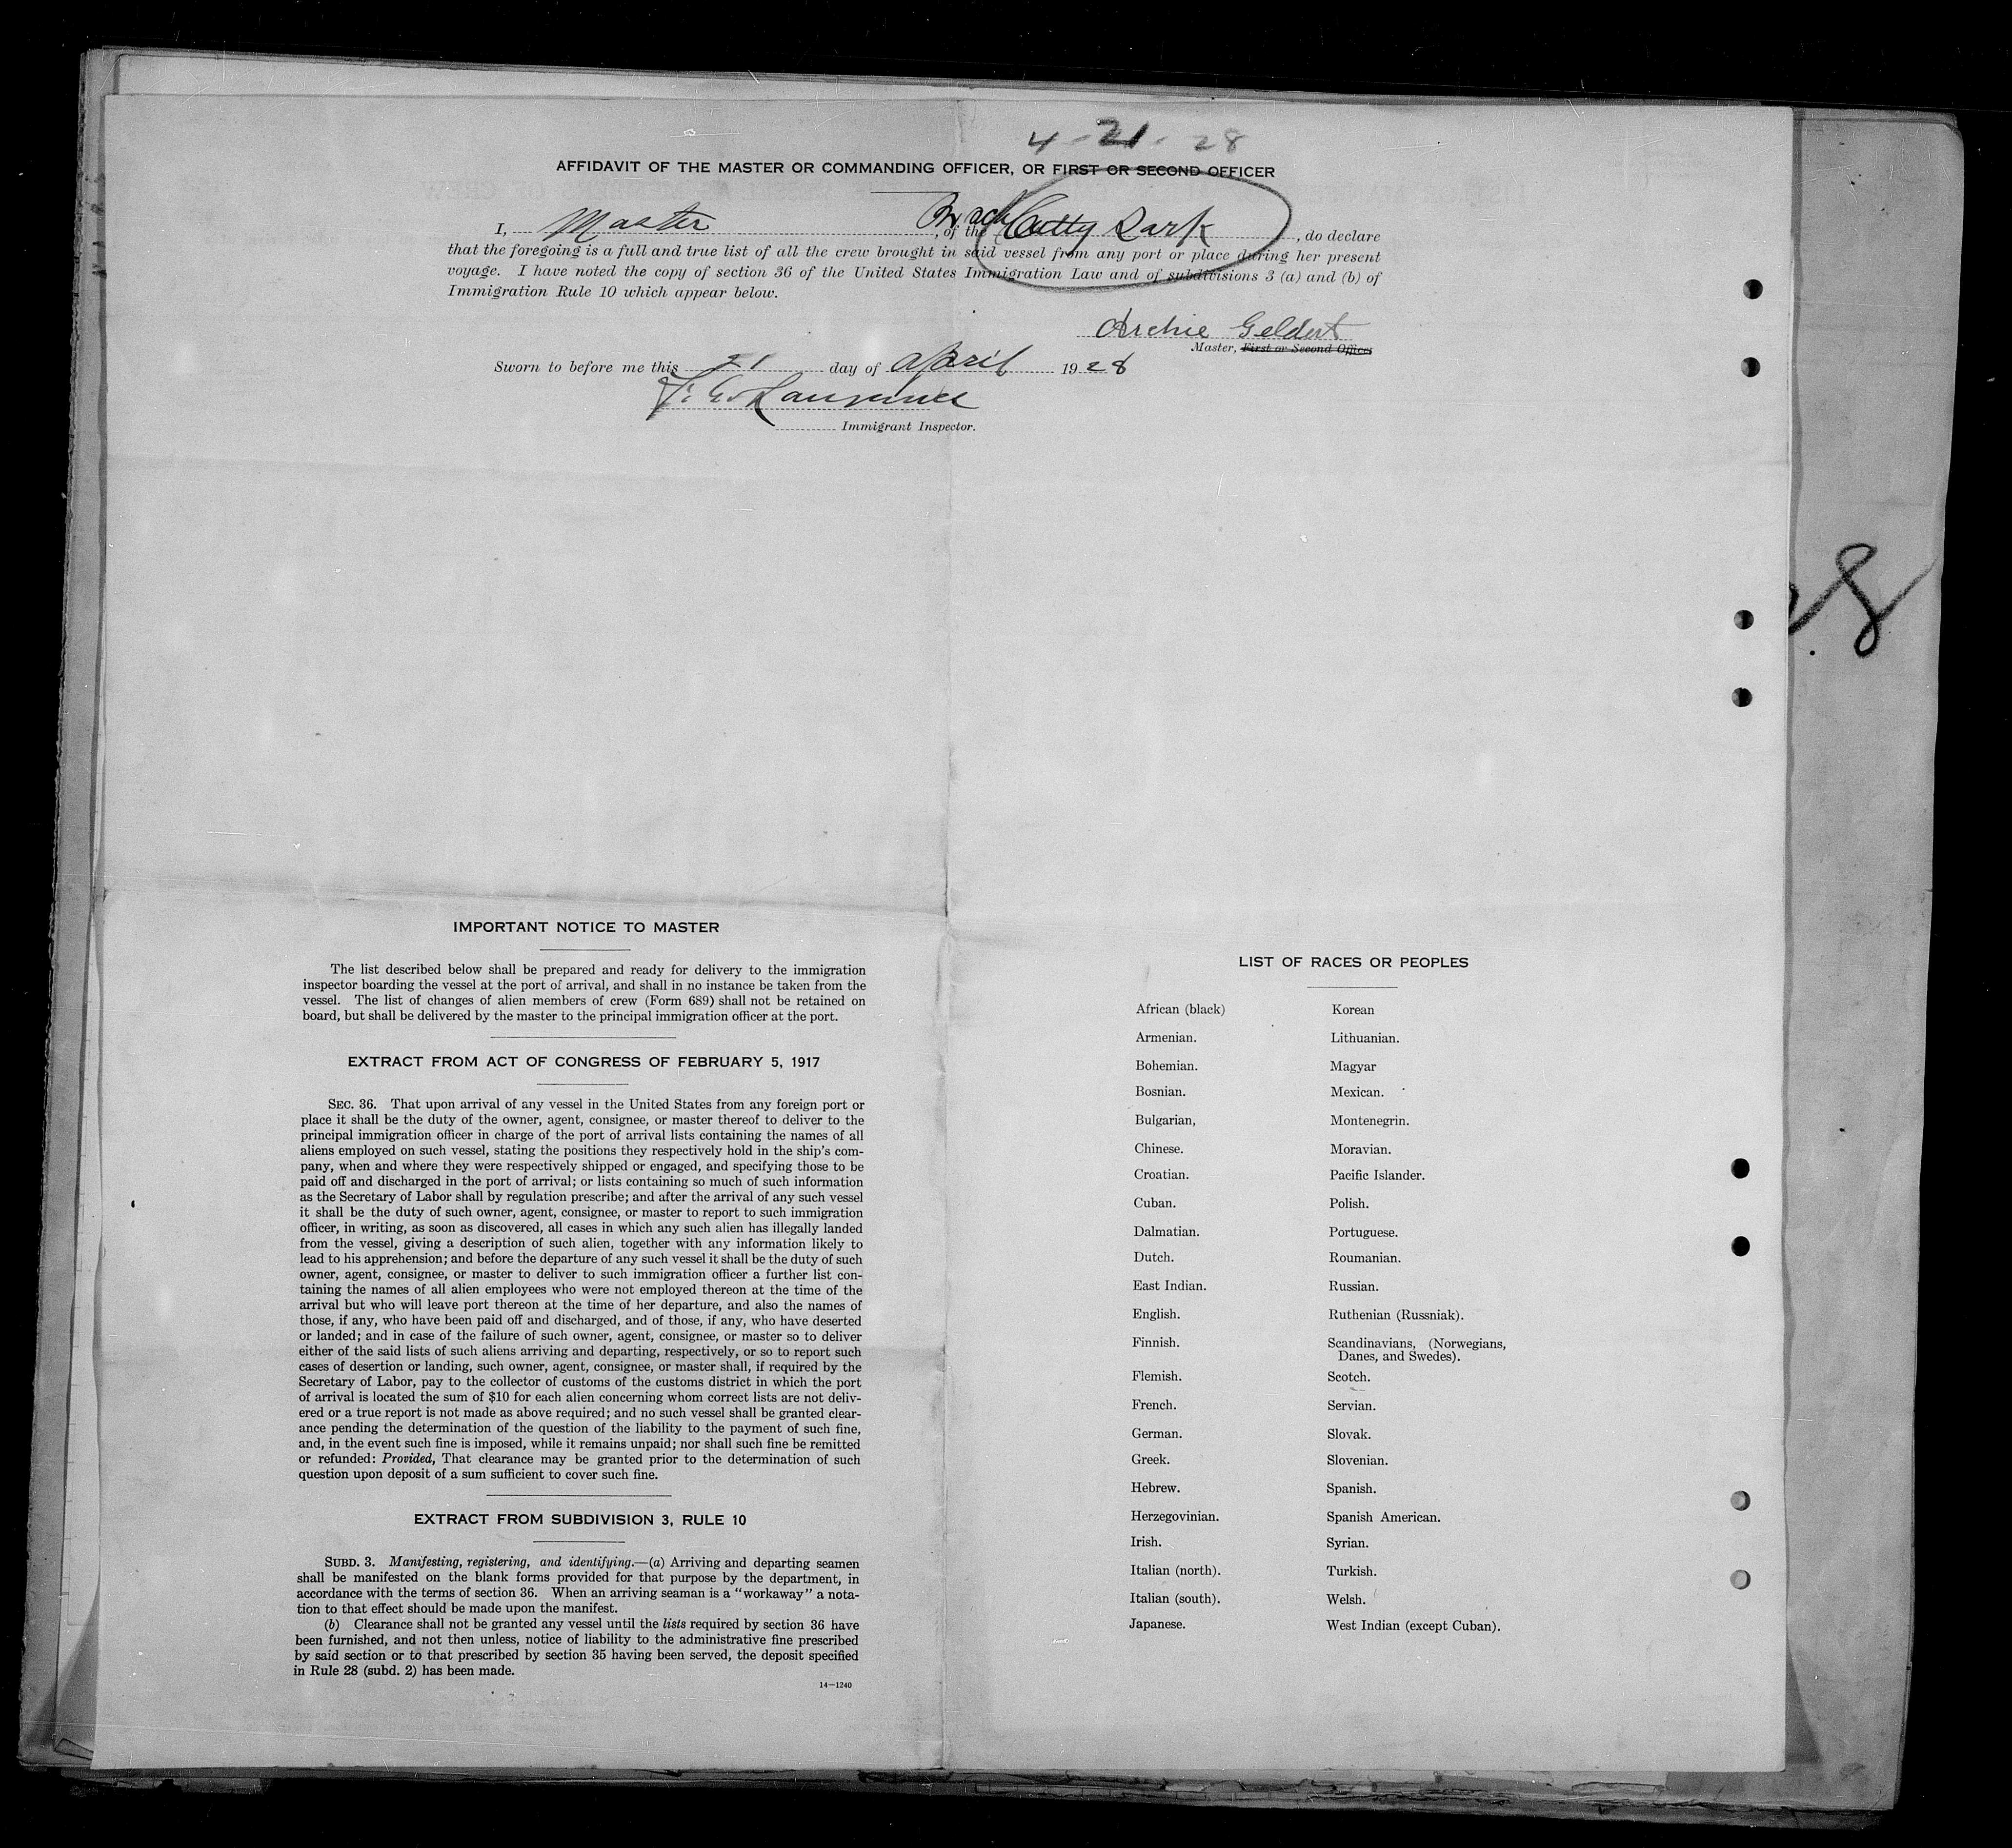 4-21-28
AFFIDAVIT OF THE MASTER OR COMMANDING OFFICER, OR FIRST OR SECOND OFFICER
I, Master, of the Cutty Sark, do declare
that the foregoing is a full and true list of all the crew brought in said vessel from any port or place during her present
voyage. I have noted the copy of section 36 of the United States Immigration Law and of subdivisions 3 (a) and (b) of
Immigration Rule 10 which appear below.
Archie Geldert
Master, First or Second Officer
Sworn to before me this 21 day of April 1928
Immigrant Inspector.
8
IMPORTANT NOTICE TO MASTER
The list described below shall be prepared and ready for delivery to the immigration
inspector boarding the vessel at the port of arrival, and shall in no instance be taken from the
vessel. The list of changes of alien members of crew (Form 689) shall not be retained on
board, but shall be delivered by the master to the principal immigration officer at the port.
EXTRACT FROM ACT OF CONGRESS OF FEBRUARY 5, 1917
SEC. 36. That upon arrival of any vessel in the United States from any foreign port or
place it shall be the duty of the owner, agent, consignee, or master thereof to deliver to the
principal immigration officer in charge of the port of arrival lists containing the names of all
aliens employed on such vessel, stating the positions they respectively hold in the ship's com-
pany, when and where they were respectively shipped or engaged, and specifying those to be
paid off and discharged in the port of arrival; or lists containing so much of such information
as the Secretary of Labor shall by regulation prescribe; and after the arrival of any such vessel
it shall be the duty of such owner, agent, consignee, or master to report to such immigration
officer, in writing, as soon as discovered, all cases in which any such alien has illegally landed
from the vessel, giving a description of such alien, together with any information likely to
lead to his apprehension; and before the departure of any such vessel it shall be the duty of such
owner, agent, consignee, or master to deliver to such immigration officer a further list con-
taining the names of all alien employees who were not employed thereon at the time of the
arrival but who will leave port thereon at the time of her departure, and also the names of
those, if any, who have been paid off and discharged, and of those, if any, who have deserted
or landed; and in case of the failure of such owner, agent, consignee, or master so to deliver
either of the said lists of such aliens arriving and departing, respectively, or so to report such
cases of desertion or landing, such owner, agent, consignee, or master shall, if required by the
Secretary of Labor, pay to the collector of customs of the customs district in which the port
of arrival is located the sum of $10 for each alien concerning whom correct lists are not deliv-
ered or a true report is not made as above required; and no such vessel shall be granted clear-
ance pending the determination of the question of the liability to the payment of such fine,
and, in the event such fine is imposed, while it remains unpaid; nor shall such fine be remitted
or refunded: Provided, That clearance may be granted prior to the determination of such
question upon deposit of a sum sufficient to cover such fine.
EXTRACT FROM SUBDIVISION 3, RULE 10
SUBD. 3. Manifesting, registering, and identifying.—(a) Arriving and departing seamen
shall be manifested on the blank forms provided for that purpose by the department, in
accordance with the terms of section 36. When an arriving seaman is a "workaway" a nota-
tion to that effect should be made upon the manifest.
(b) Clearance shall not be granted any vessel until the lists required by section 36 have
been furnished, and not then unless, notice of liability to the administrative fine prescribed
by said section or to that prescribed by section 35 having been served, the deposit specified
in Rule 28 (subd. 2) has been made.
14—1240
LIST OF RACES OR PEOPLES
African (black)
Armenian.
Bohemian.
Bosnian.
Bulgarian,
Chinese.
Croatian.
Cuban.
Dalmatian.
Dutch.
East Indian.
English.
Finnish.
Flemish.
French.
German.
Greek.
Hebrew.
Herzegovinian.
Irish.
Italian (north).
Italian (south).
Japanese.
Korean
Lithuanian.
Magyar
Mexican.
Montenegrin.
Moravian.
Pacific Islander.
Polish.
Portuguese.
Roumanian.
Russian.
Ruthenian (Russniak).
Scandinavians, (Norwegians,
Danes, and Swedes).
Scotch.
Servian.
Slovak.
Slovenian.
Spanish.
Spanish American.
Syrian.
Turkish.
Welsh.
West Indian (except Cuban).